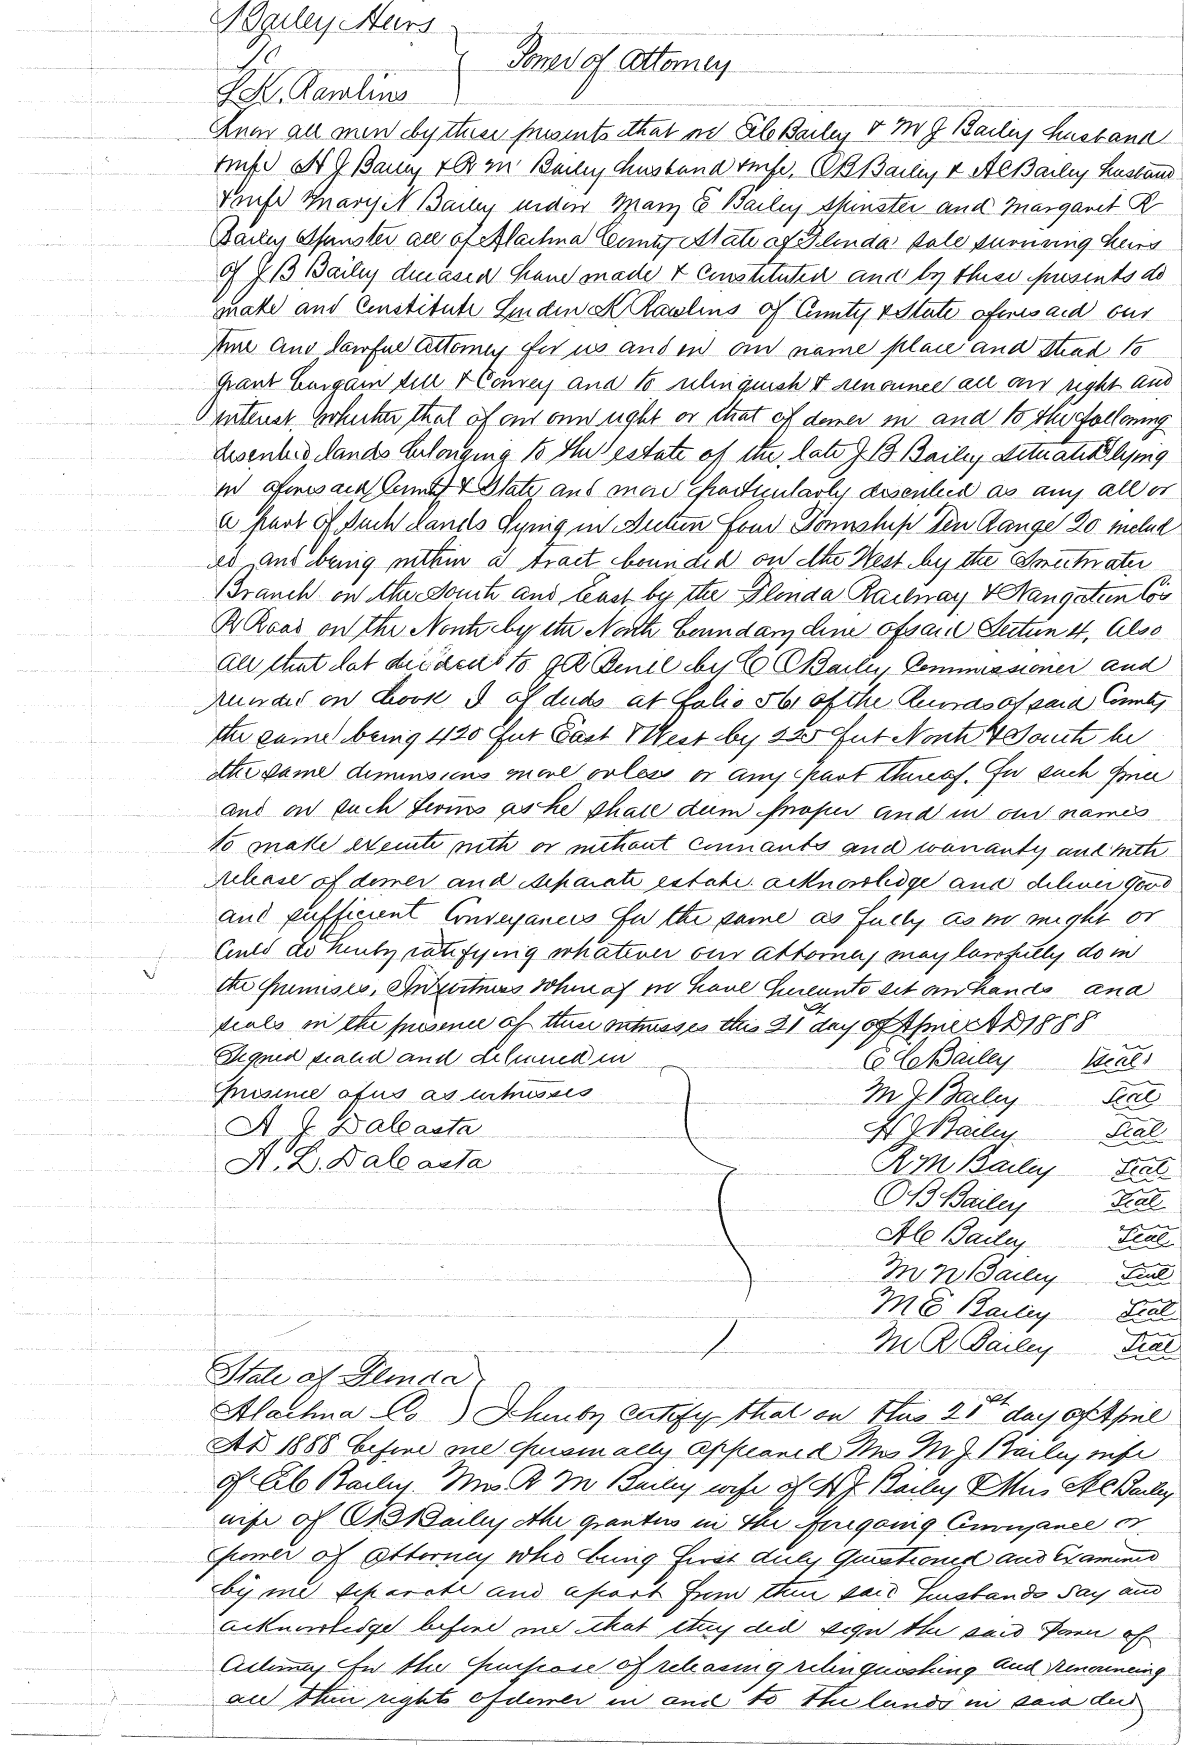 Bailey Heirs
To
L K. Rawlins
Power of Attorney
Know all men by these presents that we E C Bailey & M J Bailey husband
& wife H J Bailey & R M Bailey husband & wife, O B Bailey & A C Bailey husband
& wife Mary N Bailey widow Mary E Bailey Spinster and Margaret R
Bailey Spinster all of Alachua County State of Florida sole surviving heirs
of J B Bailey deceased have made & constituted and by these presents do
make and constitute Linden K Rawlins of County & State aforesaid our
true and lawful attorney for us and in our name place and stead to
grant bargain sell & Convey and to relinquish & renounce all our right and
interest whether that of our own right or that of dower in and to the following
described lands belonging to the estate of the late J B Bailey situate lying
in aforesaid County & State and more particularly described as any all or
a part of such lands lying in Section four Township Ten Range 20 includ
ed and being within a tract bounded on the West by the Sweetwater
Branch on the South and East by the Florida Railway & Navigation Co's
R Road on the North by the North boundary line of said Section 4. Also
all that lot deeded to by E C Bailey Commissioner and
recorded in book I of deeds at folio 561 of the Records of said County
the same being 420 feet East & West by 225 feet North & South be
the same dimensions more or less or any part thereof. for such price
and on such terms as he shall deem proper and in our names
to make execute with or without covenants and warranty and with
release of dower and separate estate acknowledge and deliver good
and sufficient Conveyances for the same as fully as we might or
could do hereby ratifying whatever our attorney may lawfully do in
the premises. In witness whereof we have hereunto set our hands and
seals in the presence of these witnesses this 21st day of April AD 1888
Signed sealed and delivered in
presence of us as witnesses
A J Dalcasta
A. L. Dalcasta
E C Bailey Seal
M J Bailey Seal
H J Bailey Seal
R M Bailey Seal
O B Bailey Seal
A C Bailey Seal
M N Bailey Seal
M E Bailey Seal
M R Bailey Seal
State of Florida
Alachua Co ) I hereby certify that on this 21st day of April
AD 1888 before me personally appeared Mrs M J Bailey wife
of E C Bailey Mrs R M Bailey wife of H J Bailey & Mrs A C Bailey
wife of O B Bailey the grantors in the foregoing Conveyance or
power of attorney who being first duly Questioned and Examined
by me separate and apart from their said husbands say and
acknowledge before me that they did sign the said Power of
Attorney for the purpose of releasing relinquishing and renouncing
all their rights of dower in and to the lands in said deed